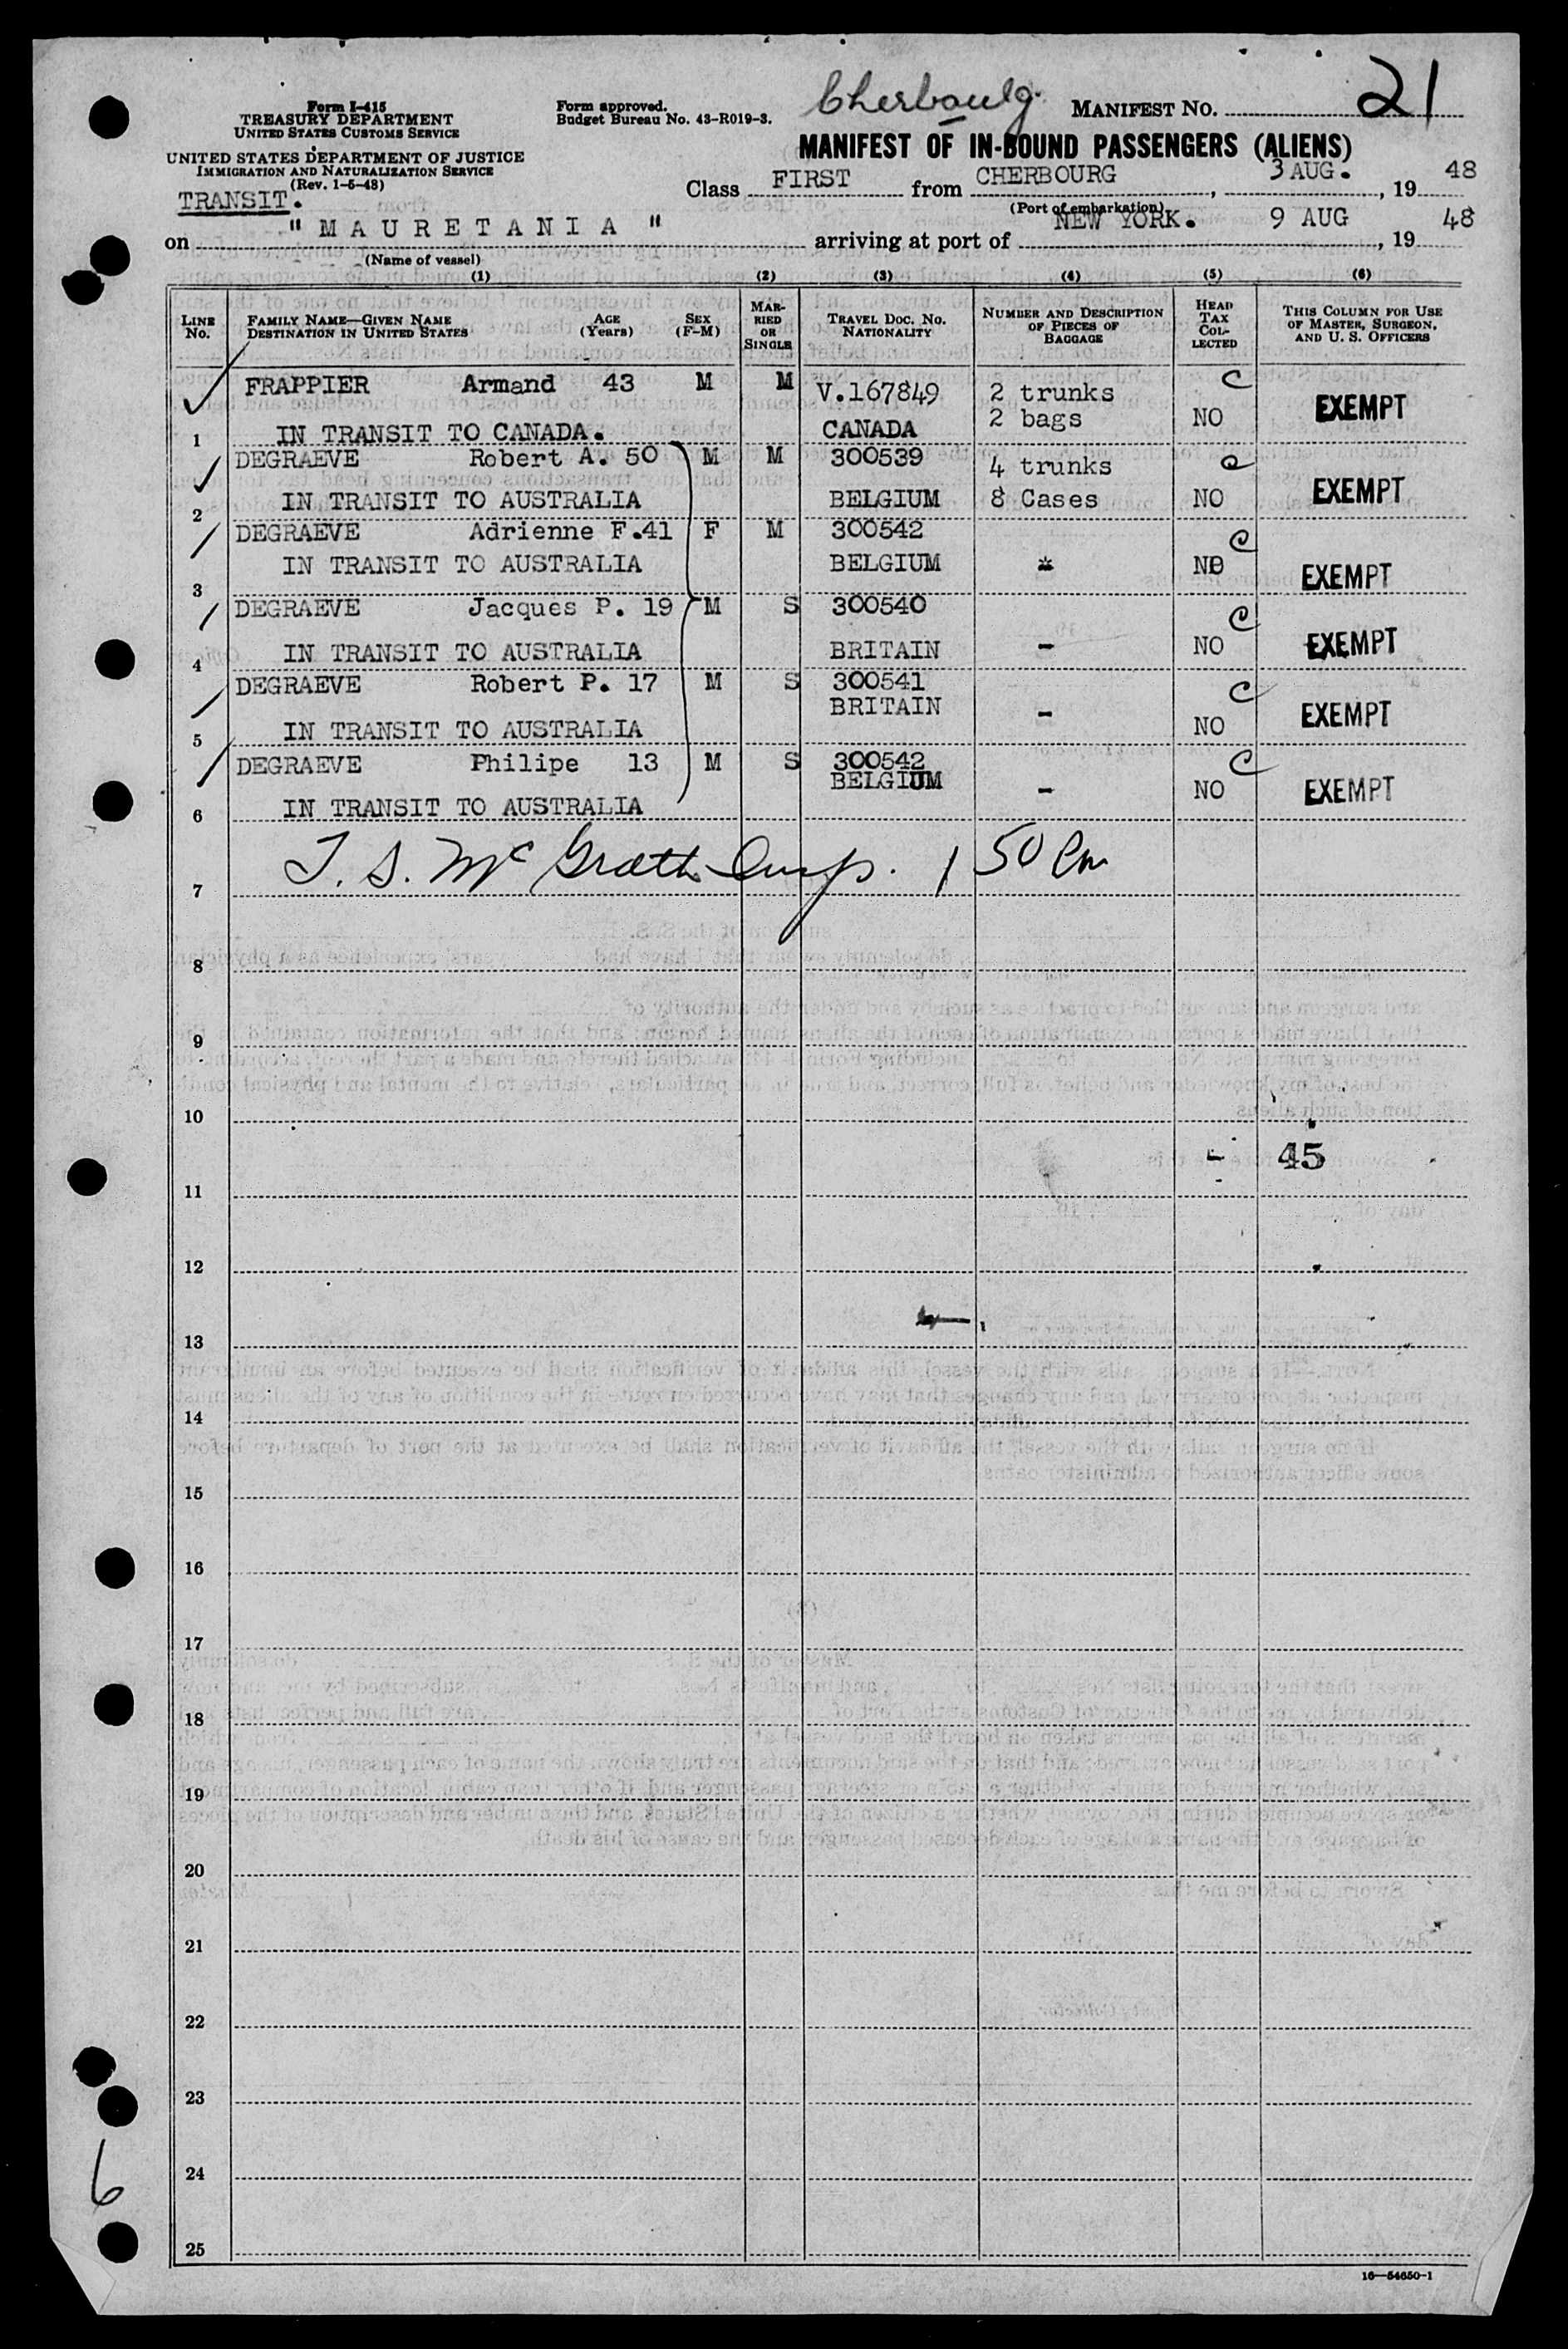 Form I-415
TREASURY DEPARTMENT
UNITED STATES CUSTOMS SERVICE
UNITED STATES DEPARTMENT OF JUSTICE
IMMIGRATION AND NATURALIZATION SERVICE
(Rev. 1-5-48)
TRANSIT.
Form approved.
Budget Bureau No. 43-R019-3.
Cherbourg.
MANIFEST NO. 21
MANIFEST OF IN-BOUND PASSENGERS (ALIENS)
Class FIRST from CHERBOURG, 3 AUG., 19 48
(Port of embarkation)
on "MAURETANIA" arriving at port of NEW YORK. 9 AUG, 19 48
(Name of vessel)
(1) (2) (3) (4) (5) (6)
LINE No. FAMILY NAME—GIVEN NAME DESTINATION IN UNITED STATES AGE (Years) SEX (F-M) MARRIED OR SINGLE TRAVEL DOC. NO. NATIONALITY NUMBER AND DESCRIPTION OF PIECES OF BAGGAGE HEAD TAX COLLECTED THIS COLUMN FOR USE OF MASTER, SURGEON, AND U. S. OFFICERS
FRAPPIER Armand 43 M M V.167849 2 trunks C
2 bags NO EXEMPT
1 IN TRANSIT TO CANADA. CANADA
DEGRAEVE Robert A. 50 M M 300539 4 trunks C
2 IN TRANSIT TO AUSTRALIA BELGIUM 8 Cases NO EXEMPT
DEGRAEVE Adrienne F. 41 F M 300542 C
3 IN TRANSIT TO AUSTRALIA BELGIUM NO EXEMPT
DEGRAEVE Jacques P. 19 M S 300540 C
4 IN TRANSIT TO AUSTRALIA BRITAIN - NO EXEMPT
DEGRAEVE Robert P. 17 M S 300541 C
BRITAIN
5 IN TRANSIT TO AUSTRALIA - NO EXEMPT
DEGRAEVE Philipe 13 M S 300542 C
BELGIUM
6 IN TRANSIT TO AUSTRALIA - NO EXEMPT
7 T. S. McGrath Insp. 1 50
8
9
10
45
11
12
13
14
15
16
17
18
19
20
21
22
23
24
25
6
16—54650-1